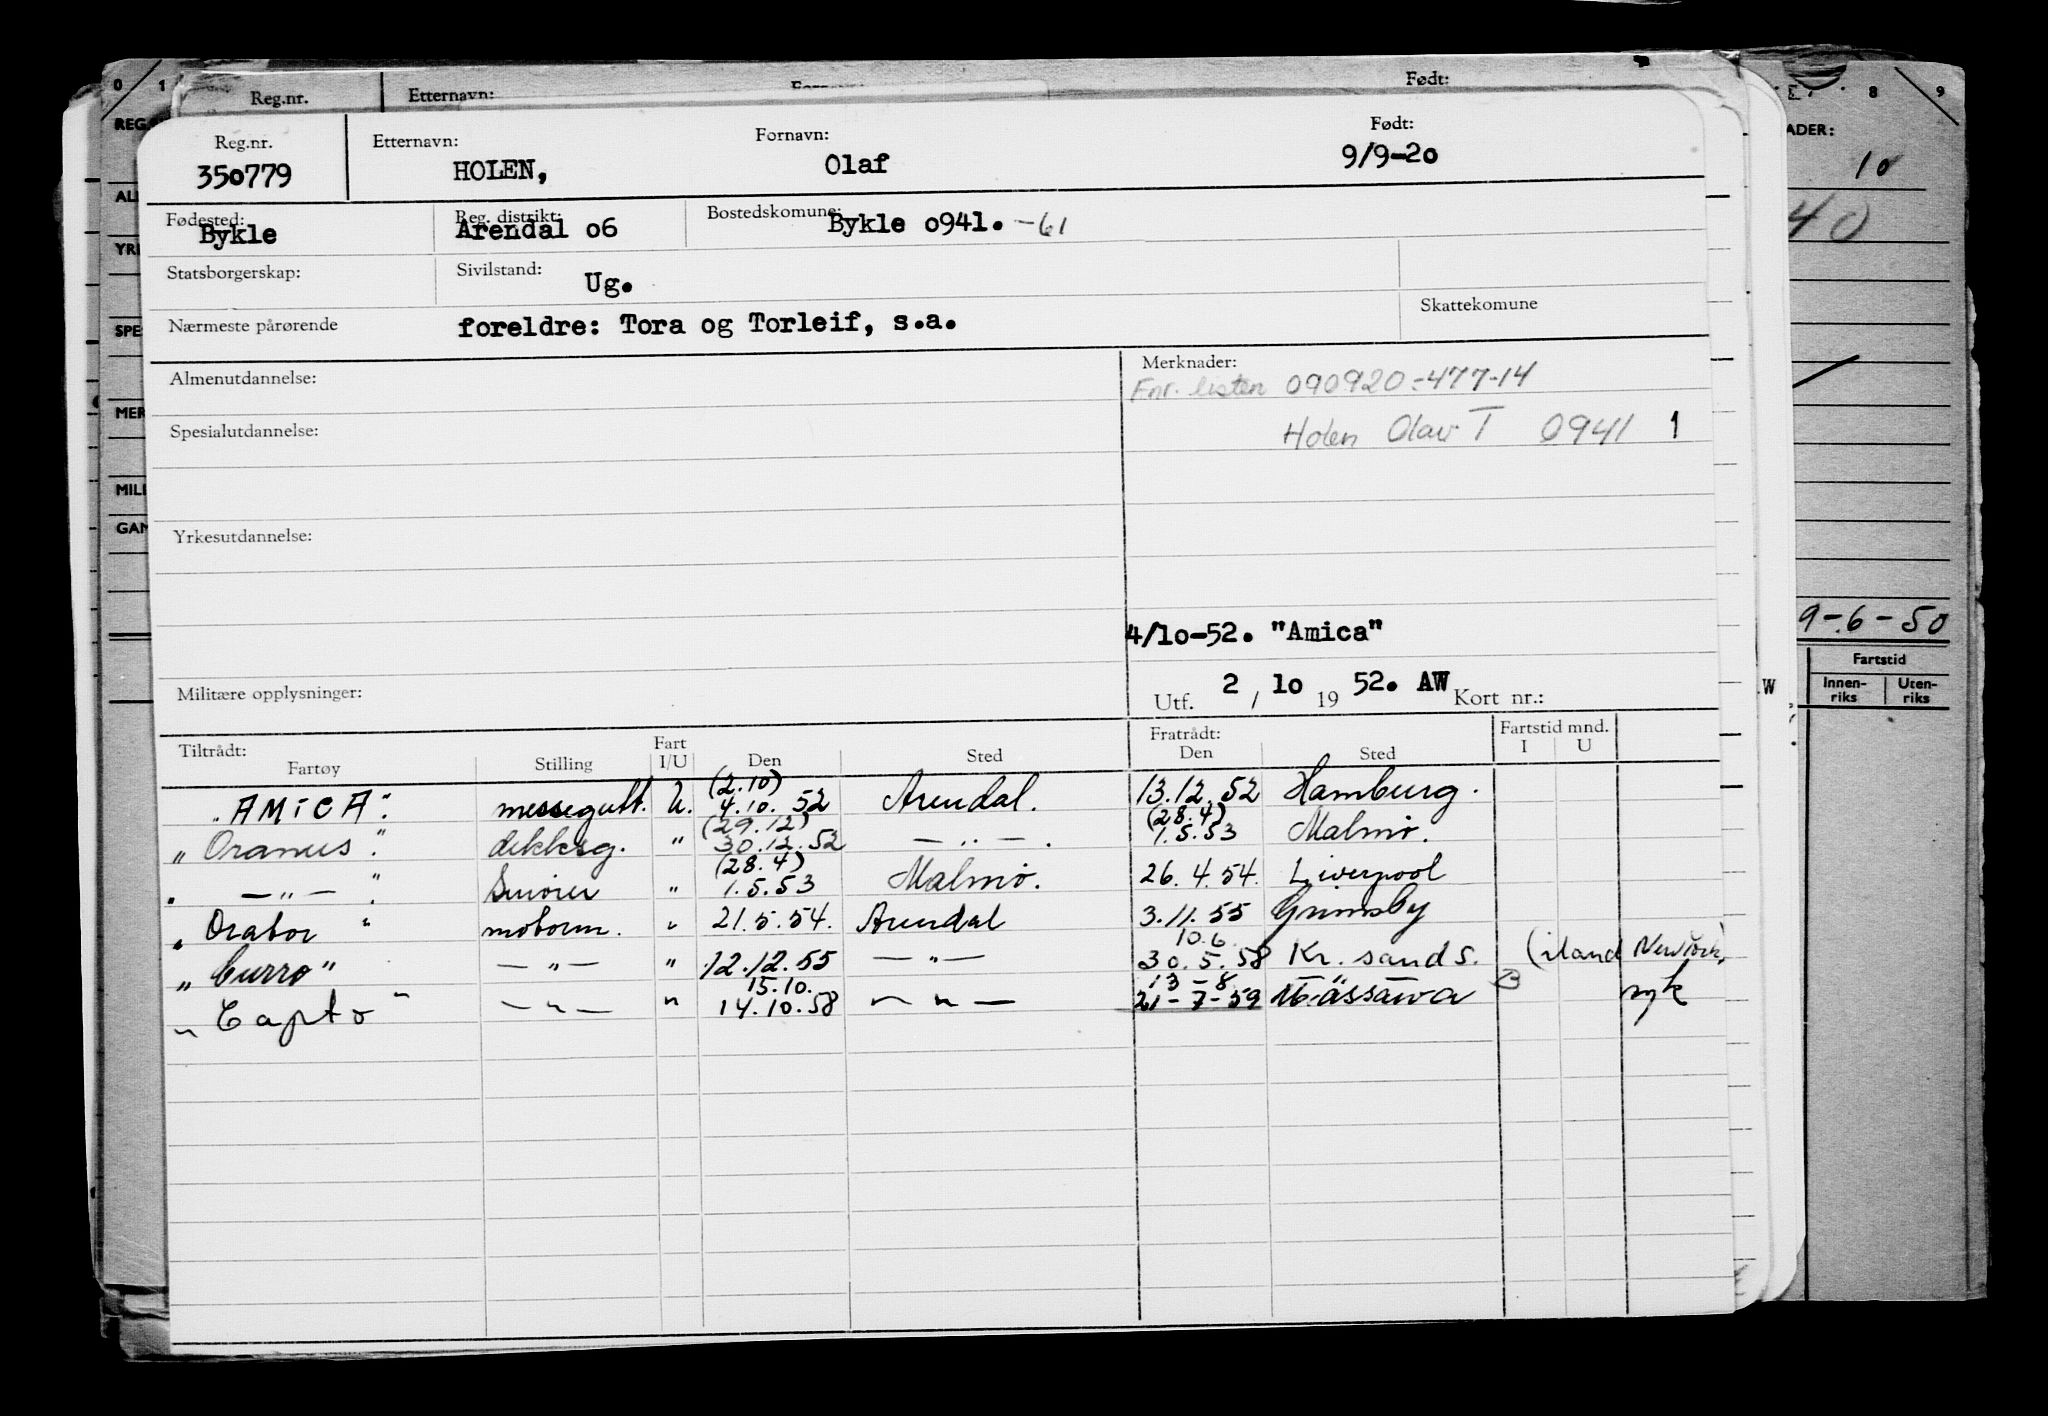 0 1 8 9
Reg.nr. Etternavn: Født:
REG. ADER:
Reg.nr. Etternavn: Fornavn: Født:
350779 HOLEN, Olaf 9/9-20
10
Fødested: Reg. distrikt: Bostedskomune:
Bykle Arendal o6 Bykle o941. -61
40
Statsborgerskap: Sivilstand: Ug.
Skattekomune
Nærmeste pårørende foreldre: Tora og Torleif, s.a.
Almenutdannelse: Merknader:
Fnr. listen 090920-477-14
Spesialutdannelse: Holen Olav T 0941 1
Yrkesutdannelse:
4/10-52. "Amica"
9-6-50
Militære opplysninger: Utf. 2 / 10 19 52. AW Kort nr.:
Fartstid
Innen-riks Uten-riks
Tiltrådt: Fart Fratrådt: Fartstid mnd.
Fartøy Stilling I/U Den Sted Den Sted I U
(2.10)
"AMICA". messegutt. U. 4.10. 52 Arendal. 13.12.52 Hamburg.
(29.12) (28.4)
"Oranus". dekksg. " 30.12.52 — " — . 1.5.53 Malmø.
(28.4)
" — " — ". Smører " 1.5.53 Malmø. 26.4.54. Liverpool
"Orator" motorm. " 21.5.54. Arendal 3.11.55 Grimsby
10.6.
"Curro" — " — " 12.12.55 — " — 30.5.58 Kr. sand S. (iland New York,
15.10. 13-8
"Capto" — " — " 14.10.58 — " — 21-7-59 Massawa syk